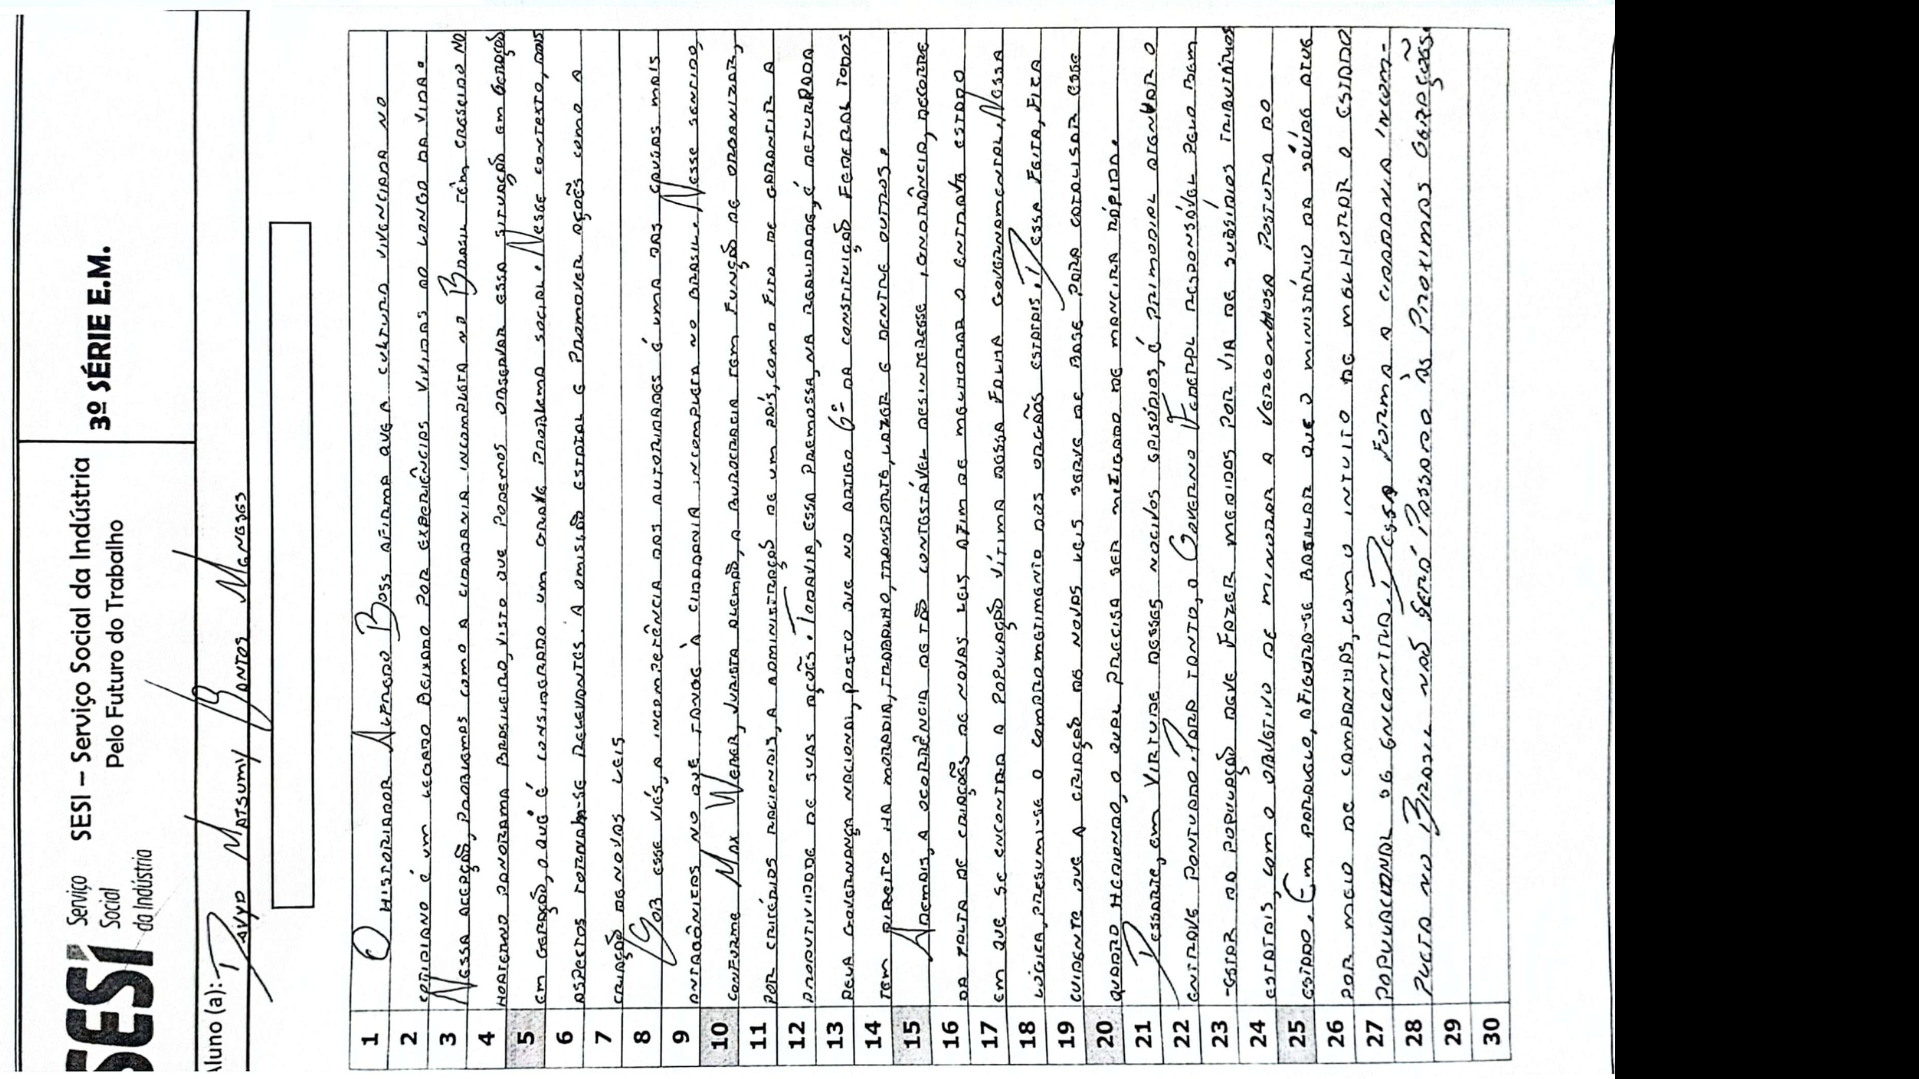 SESI
Serviço
Social
da Indústria
SESI – Serviço Social da Indústria
Pelo Futuro do Trabalho
3º SÉRIE E.M.
Aluno (a): Davyd Matsumy Santos Meneses
1 O historiador Alfredo Boss afirma que a cultura vivenciada no
2 cotidiano é um legado deixado por experiências vividas ao longo da vida.
3 Nessa acepção, problemas como a cidadania incompleta no Brasil têm crescido no
4 hodierno panorama brasileiro, visto que podemos observar essa situação em geração
5 em geração, o qué é considerado um grave problema social. Nesse contexto, dois
6 aspectos tornam-se relevantes. A omissão estatal e promover ações como a
7 criação de novas leis
8 Sob esse viés, a incompetência das autoridades é uma das causas mais
9 antagônicas no que tange à cidadania incompleta no Brasil. Nesse sentido,
10 conforme Max Weber, jurista alemão, a burocracia tem função de organizar,
11 por critérios racionais, a administração de um país, com o fito de garantir a
12 produtividade de suas ações. Todavia, essa premossa, na realidade, é deturpada
13 pela governança nacional, posto que no artigo 6º da constituição Federal todos
14 tem direito há moradia, trabalho, transporte, lazer e dentre outros.
15 Ademais, a ocorrência de tão contestável desinteresse, ignorância, decorre
16 da falta de criações de novas leis afim de melhorar o entrave estado
17 em que se encontra a população vítima dessa falha governamental. Nessa
18 lógica, presumi-se o comprometimento dos orgãos estatais. Dessa feita, fica
19 evidente que a criação de novas leis serve de base para catalisar esse
20 quadro hediondo, o qual precisa ser mitigado de maneira rápida.
21 Dessarte, em virtude desses nocivos episódios, é primodial atenuar o
22 entrave pontuado. Para tanto, o Governo Federal responsável pelo bem
23 -estar da população deve fazer medidas por via de subsídios tributários
24 estatais, com o objetivo de minorar a vergonhosa postura do
25 estado. Em paralelo, afigura-se basilar que o ministério da saúde atue
26 por meio de campanhas, com o intuito de melhorar o estado
27 populacional se encontra. Dessa forma a cidadania incom-
28 pleta no Brasil não será passado às proximas gerações.
29
30